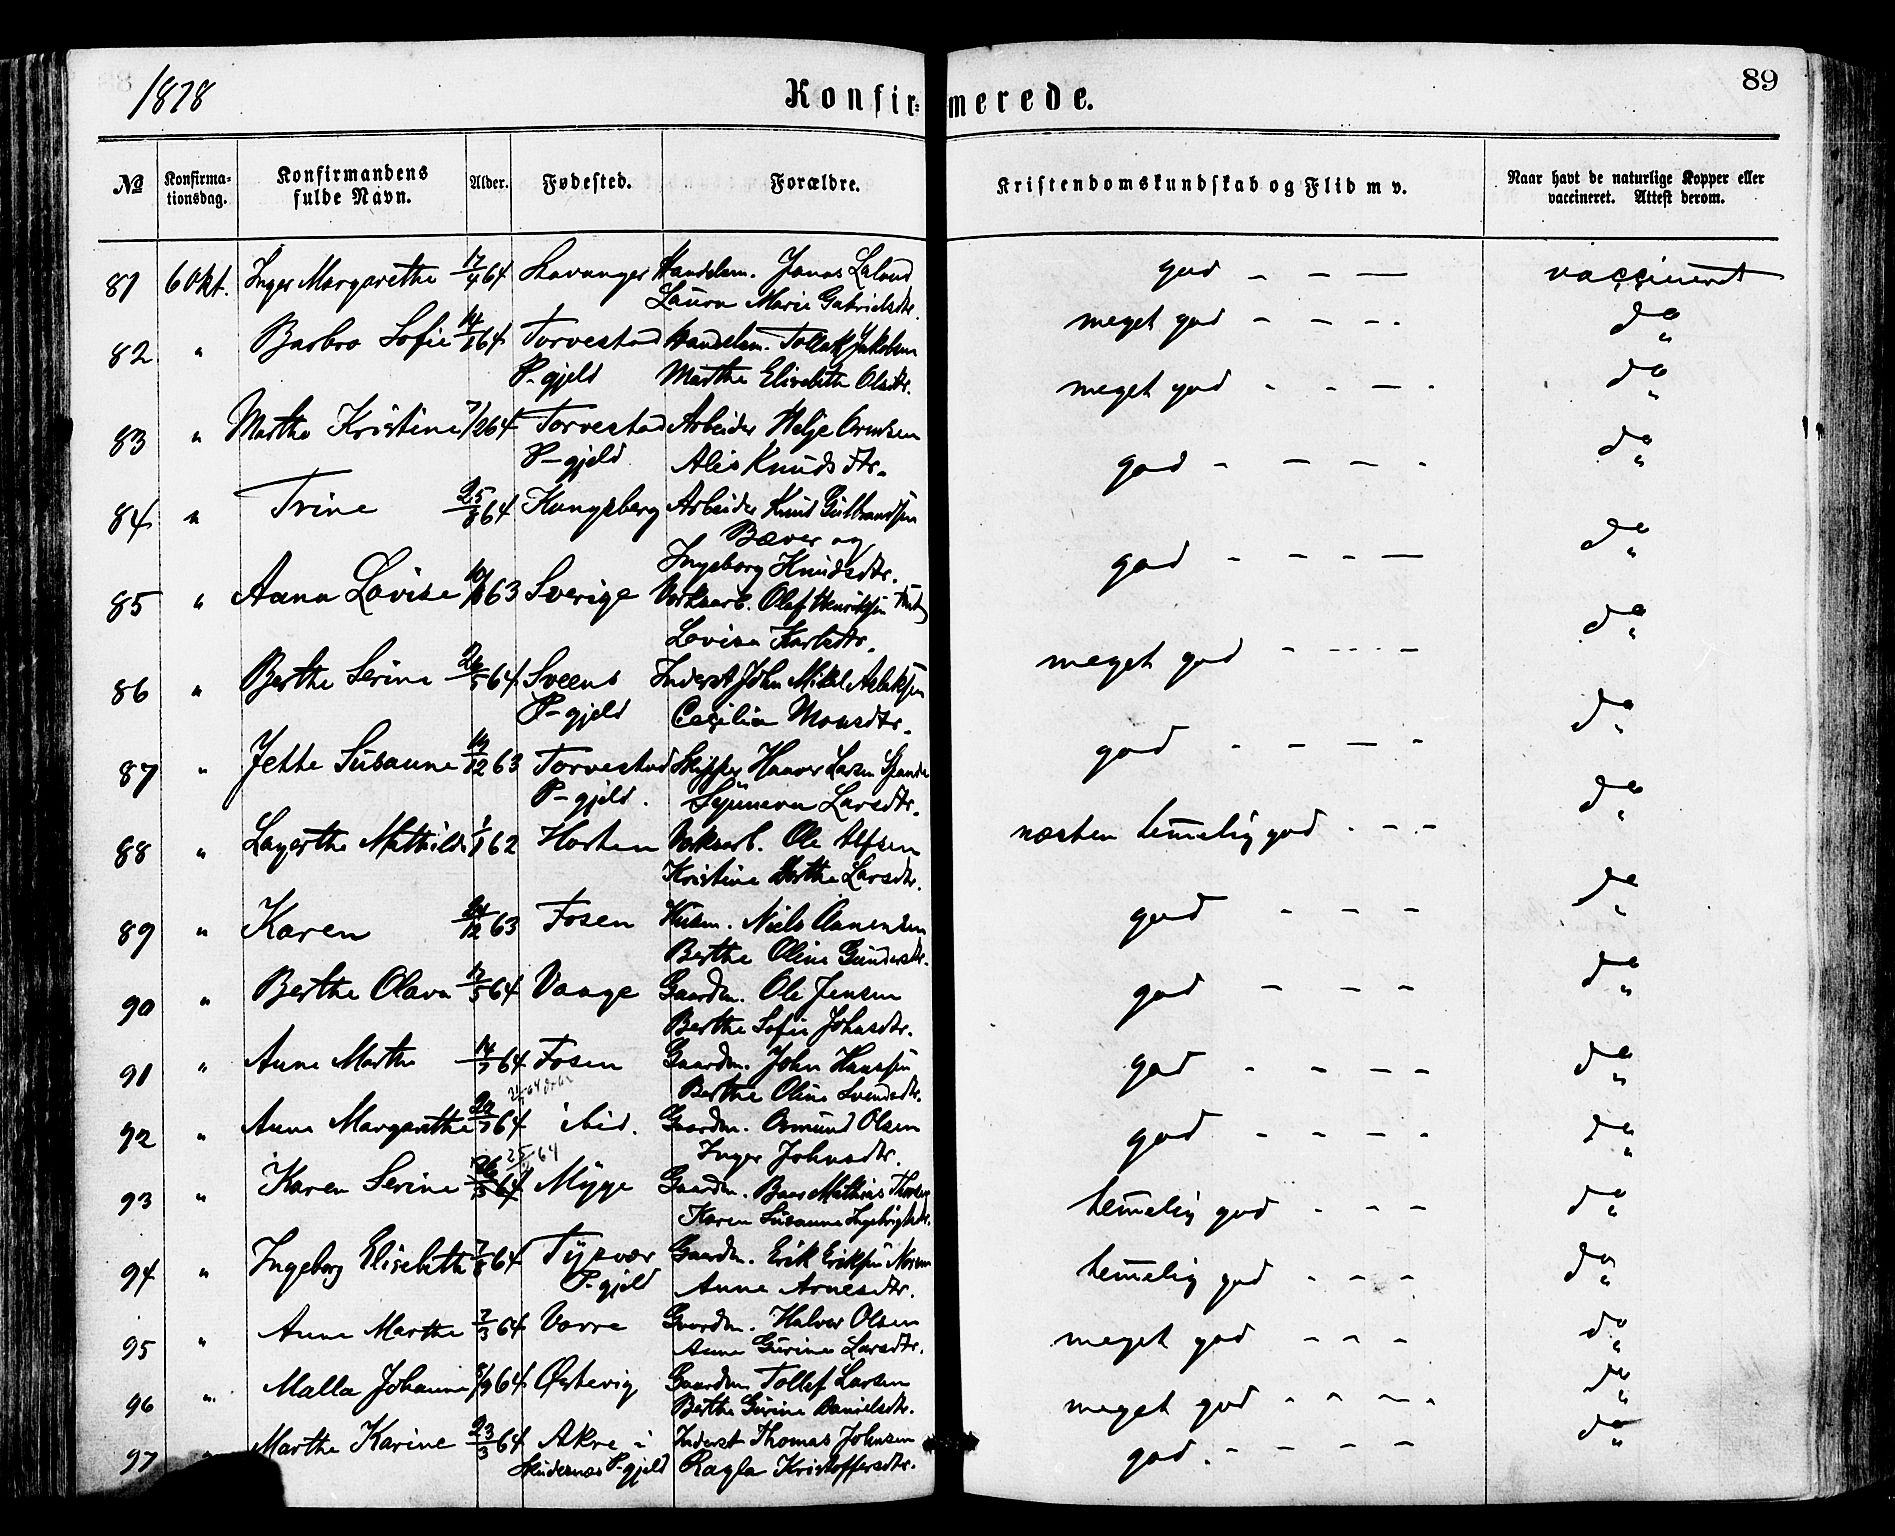 1878
Konfirmerede.
89
No
Konfirmationsdag.
Konfirmandens fulde Navn.
Alder.
Fødested.
Forældre.
Kristendomskundskab og Flid m v.
Naar havt de naturlige Kopper eller vaccineret. Attest derom.
81 6 Okt. Inger Margarethe 17/4 64 Stavanger Handelsm. Jonas Laland god - - - vaccineret
Laura Marie Gabrielsdtr.
82 " Barbro Sofie 64 Torvestad Handelsm. Tollak Jakobsen meget god - - - - do "
P-gjeld Marthe Elisabeth Olsdtr.
83 " Marthe Kristine 7/2 64 Torvestad Arbeider Helje meget god - - - - do "
P-gjeld Alis Knudsdtr.
84 " Trine 25/8 64 Kongsberg Arbeider Knud Gulbrandsen god - - - - do "
Bæver og
Ingeborg Knudsdtr.
85 " Anna Lovise 63 Sverige Olaf Henriksen god - - - - do "
Lovisa
86 " Berthe Serine 64 Sveens Inderst John Mikal Aslaksen meget god - - - do "
P-gjeld Cecilia Monsdtr.
87 " Jette Susanne 63 Torvestad Skipper Haaver Larsen god - - - - do "
P-gjeld. Synneva Larsdtr.
88 " Lagerthe Mathilde 1/1 62 Horten Ole Alfsen næsten temelig god - - - do "
Kristine Berthe Larsdtr.
89 " Karen 63 Fosen Husm. Niels Aanensen god - - - do "
Berthe Oline Gundersdtr.
90 " Berthe Olava 64 Vaage Gaardm. Ole Jensen god - - - do "
Berthe Sofie Johnsdtr.
91 " Anne Marthe 64 Fosen Gaardm. John Hansen god - - - - do "
Berthe Oline Svendsdtr.
92 " Anne Margarethe 64 ibid. Gaardm. Osmund Olsen god - - - - do "
Inger Johnsdtr.
93 " Karen Serine 64 Mÿge Gaardm. Baar Mathias temelig god - - - do "
Karen Susanne Ingebrigtsdtr.
94 " Ingeborg Elisebeth 64 Tÿsvær Gaardm. Erik Eriksen temelig god - - - do "
P-gjeld Anne Arnesdtr.
95 " Anne Marthe 7/3 64 Vorre Gaardm. Halvor Olsen meget god - - - do "
Anne Gurine Larsdtr.
96 " Malla Johanne 64 Østevig Gaardm. Tollef Larsen meget god - - - - do "
Berthe Gurine Danielsdtr.
97 " Marthe Karine 23/3 64 Akre i Inderst Thomas Johnsen god. - - - - do "
Skudenæs P-gjeld Ragla Kristoffersdtr.